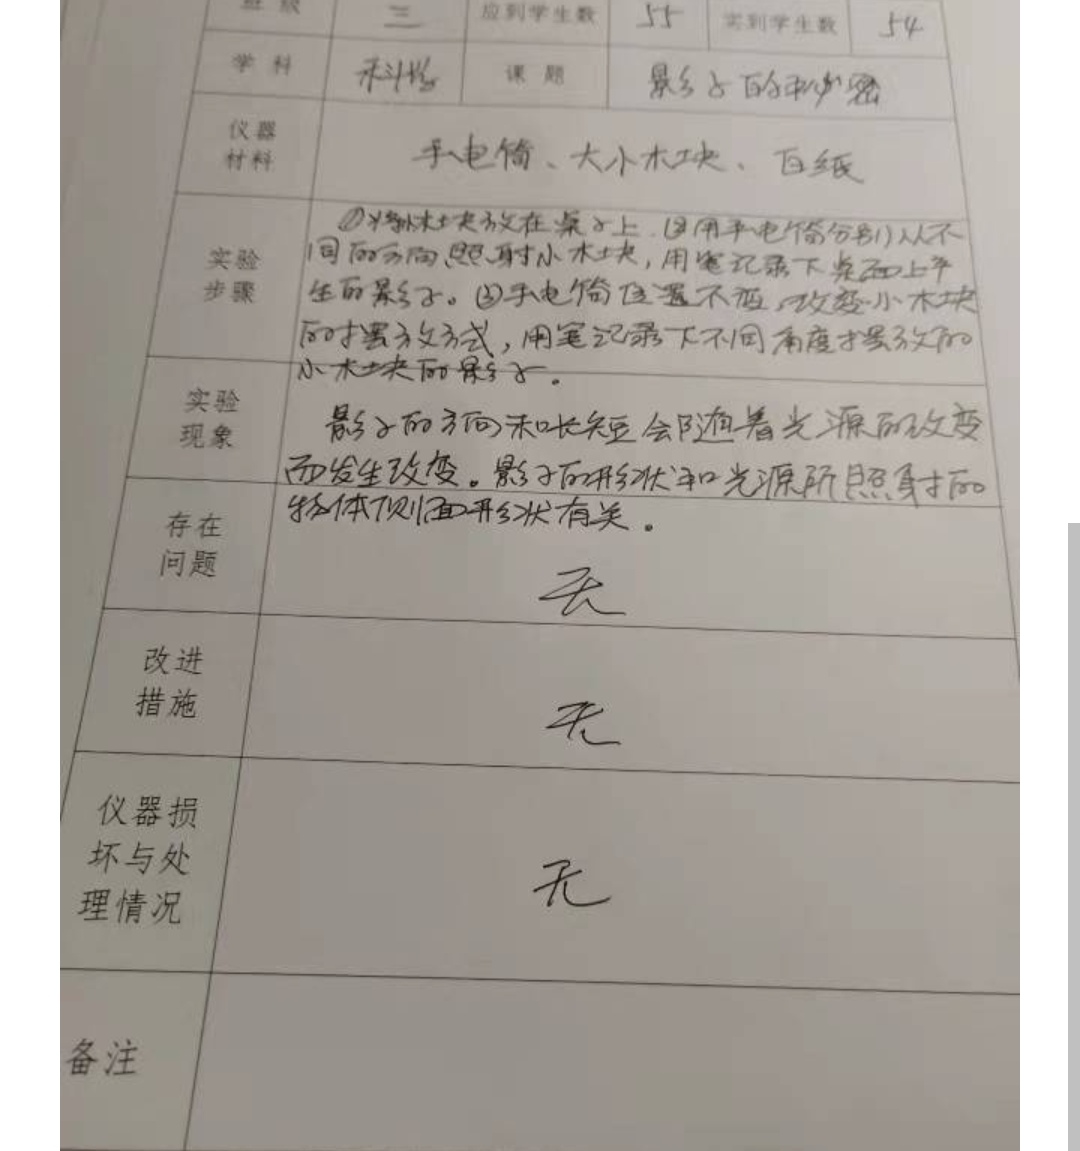 班级 三 应到学生数 55 实到学生数 54
学科 科学 课题 影子的秘密
仪器
材料
手电筒、大小木块、白纸
实验
步骤
①将小木块放在桌子上.②用手电筒分别从不
同的方向照射小木块,用笔记录下桌面上产
生的影子。③手电筒位置不变,改变小木块
的摆放方式,用笔记录下不同角度摆放的
小木块的影子。
实验
现象
影子的方向和长短会随着光源的改变
而发生改变。影子的形状和光源所照射的
物体侧面形状有关。
存在
问题
无
改进
措施
无
仪器损
坏与处
理情况
无
备注